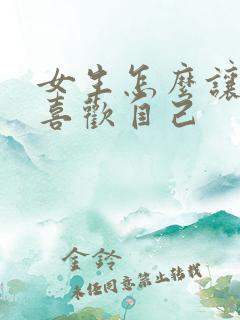 女生怎麼讓
喜歡自己
金鈴
未任同意禁止轉載